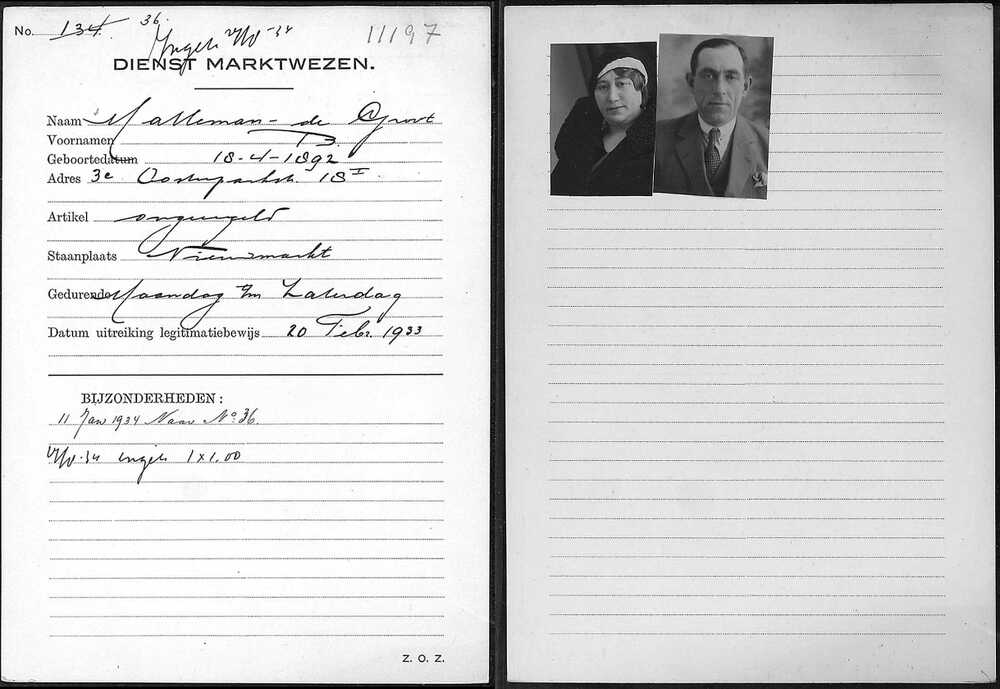 No. 134. 36.
Ingetr 29/V-34 11197
DIENST MARKTWEZEN.
Naam Matteman - de Groot
Voornamen B.
Geboortedatum 18-4-1892
Adres 3e Oosterparkstr. 18 I
Artikel ongeregeld
Staanplaats Nieuwmarkt
Gedurende Maandag t/m Zaterdag
Datum uitreiking legitimatiebewijs 20 Febr. 1933
BIJZONDERHEDEN:
11 Jan 1934 Naar No. 36.
34 1 x 1.00
Z. O. Z.